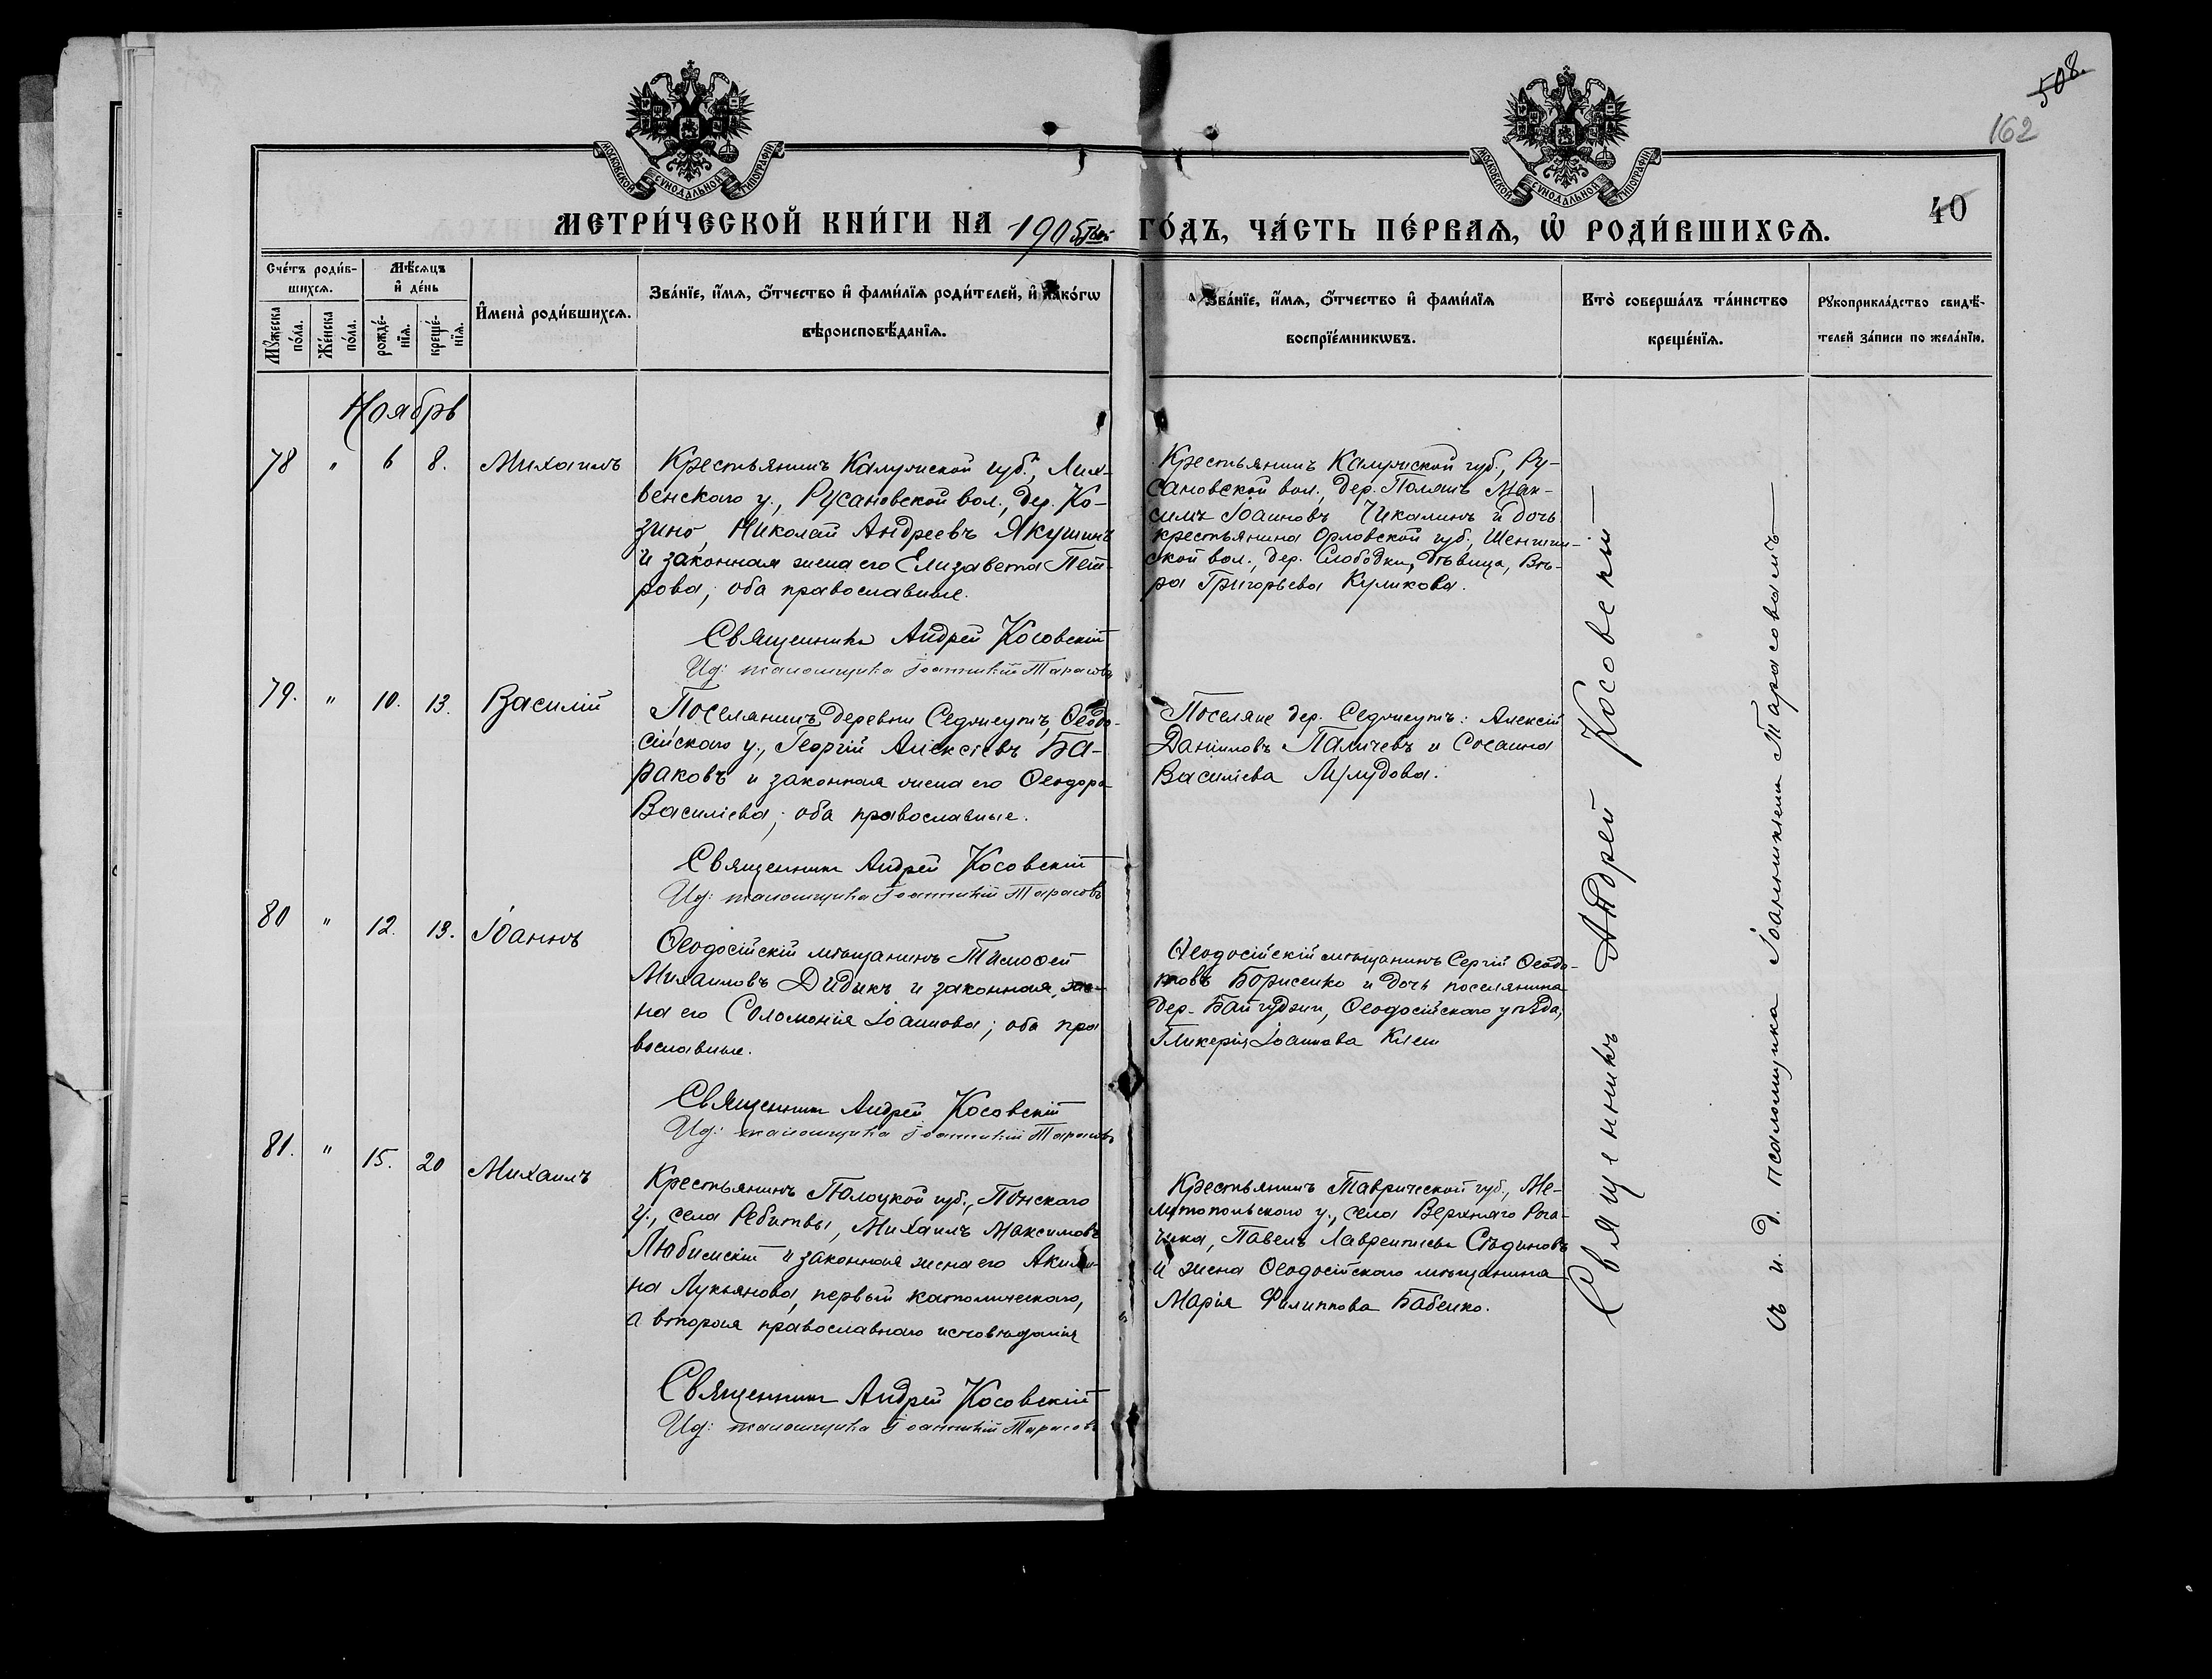 508.
162
40
МОСКОВСКОЙ СѴНОДАЛЬНОЙ ТИПОГРАФІИ
МОСКОВСКОЙ СѴНОДАЛЬНОЙ ТИПОГРАФІИ
МЕТРИ́ЧЕСКОЙ КНИ́ГИ НА 1905 ГО́ДЪ, ЧА́СТЬ ПЕ́РВАѦ, Ѽ РОДИ́ВШИХСѦ.
Сче́тъ роди́в-
шихсѧ.
Мꙋ́жеска
по́ла.
Же́нска
по́ла.
Мѣ́сѧцъ
и҆ де́нь
рожде́-
нїѧ.
креще́-
нїѧ.
И҆мена̀ роди́вшихсѧ.
Зва́нїе, и҆́мѧ, ѻ҆́тчество и҆ фами́лїѧ роди́телей, и҆ како́гѡ
вѣроисповѣ́данїѧ.
Зва́нїе, и҆́мѧ, ѻ҆́тчество и҆ фами́лїѧ
воспрїе́мникѡвъ.
Кто̀ соверша́лъ та́инство
креще́нїѧ.
Рꙋкоприкла́дство свидѣ́-
телей за́писи по жела́нїю.
Ноябрь
78 " 6 8. Михаилъ
Крестьянинъ Калужской губ., Лих-
венскаго у., Русановской вол., дер. Ко-
зино, Николай Андреевъ Якушинъ
и законная жена его Елизавета Пет-
рова; оба православные.
Священникъ Андрей Косовскій
И.д: псаломщика Іоанникій Тарасовъ
Крестьянинъ Калужской губ., Ру-
сановской вол., дер. Мак-
симъ Іоанновъ Чикалинъ и дочь
крестьянина Орловской губ., Шеншин-
ской вол., дер. Слободки, дѣвица, Вѣ-
ра Григорьева Куликова.
79. " 10. 13. Василій
Поселянинъ деревни Седжеутъ, Ѳеодо-
сійскаго у., Георгій Алексѣевъ Ба-
раковъ и законная жена его Ѳеодора
Василіева; оба православные.
Священникъ Андрей Косовскій
И.д: псаломщика Іоанникій Тарасовъ
Поселяне дер. Седжеутъ: Алексій
Даніиловъ Паличевъ и Сосанна
Василіева
80 " 12. 13. Іоаннъ
Ѳеодосійскій мѣщанинъ Тимоѳей
Михаиловъ Дидыкъ и законная же-
на его Соломонія Іоаннова; оба пра
вославные.
Священникъ Андрей Косовскій
И.д: псаломщика Іоанникій Тарасовъ
Ѳеодосійскій мѣщанинъ Сергій Ѳеодо-
товъ Борисенко и дочь поселянина
дер. Байгуджи, Ѳеодосійскаго уѣзда,
Гликерія Іоаннова
81. " 15. 20 Михаилъ
Крестьянинъ губ.,
у., села Михаилъ Максимовъ
Любимскій и законная жена его Акили-
на Лукьянова, первый католическаго,
а вторая православнаго исповѣданія
Священникъ Андрей Косовскій
И.д: псаломщика Іоанникій Тарасовъ
Крестьянинъ Таврической губ., Ме-
литопольскаго у., села Верхняго Рога-
чика, Павелъ Лаврентіевъ Сѣдиновъ
и жена Ѳеодосійскаго мѣщанина
Марія Филиппова Бабенко.
Священникъ Андрей Косовскій
съ и. д. псаломщика Іоанникіемъ Тарасовымъ